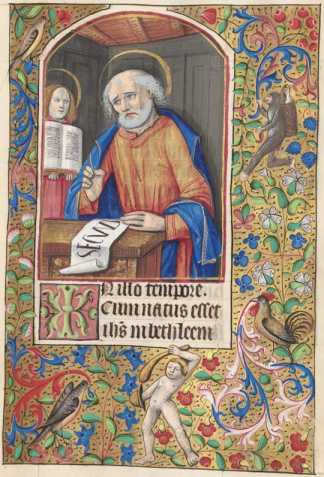 IN illo tempore.
Cum natus esset
ihs in bethleem